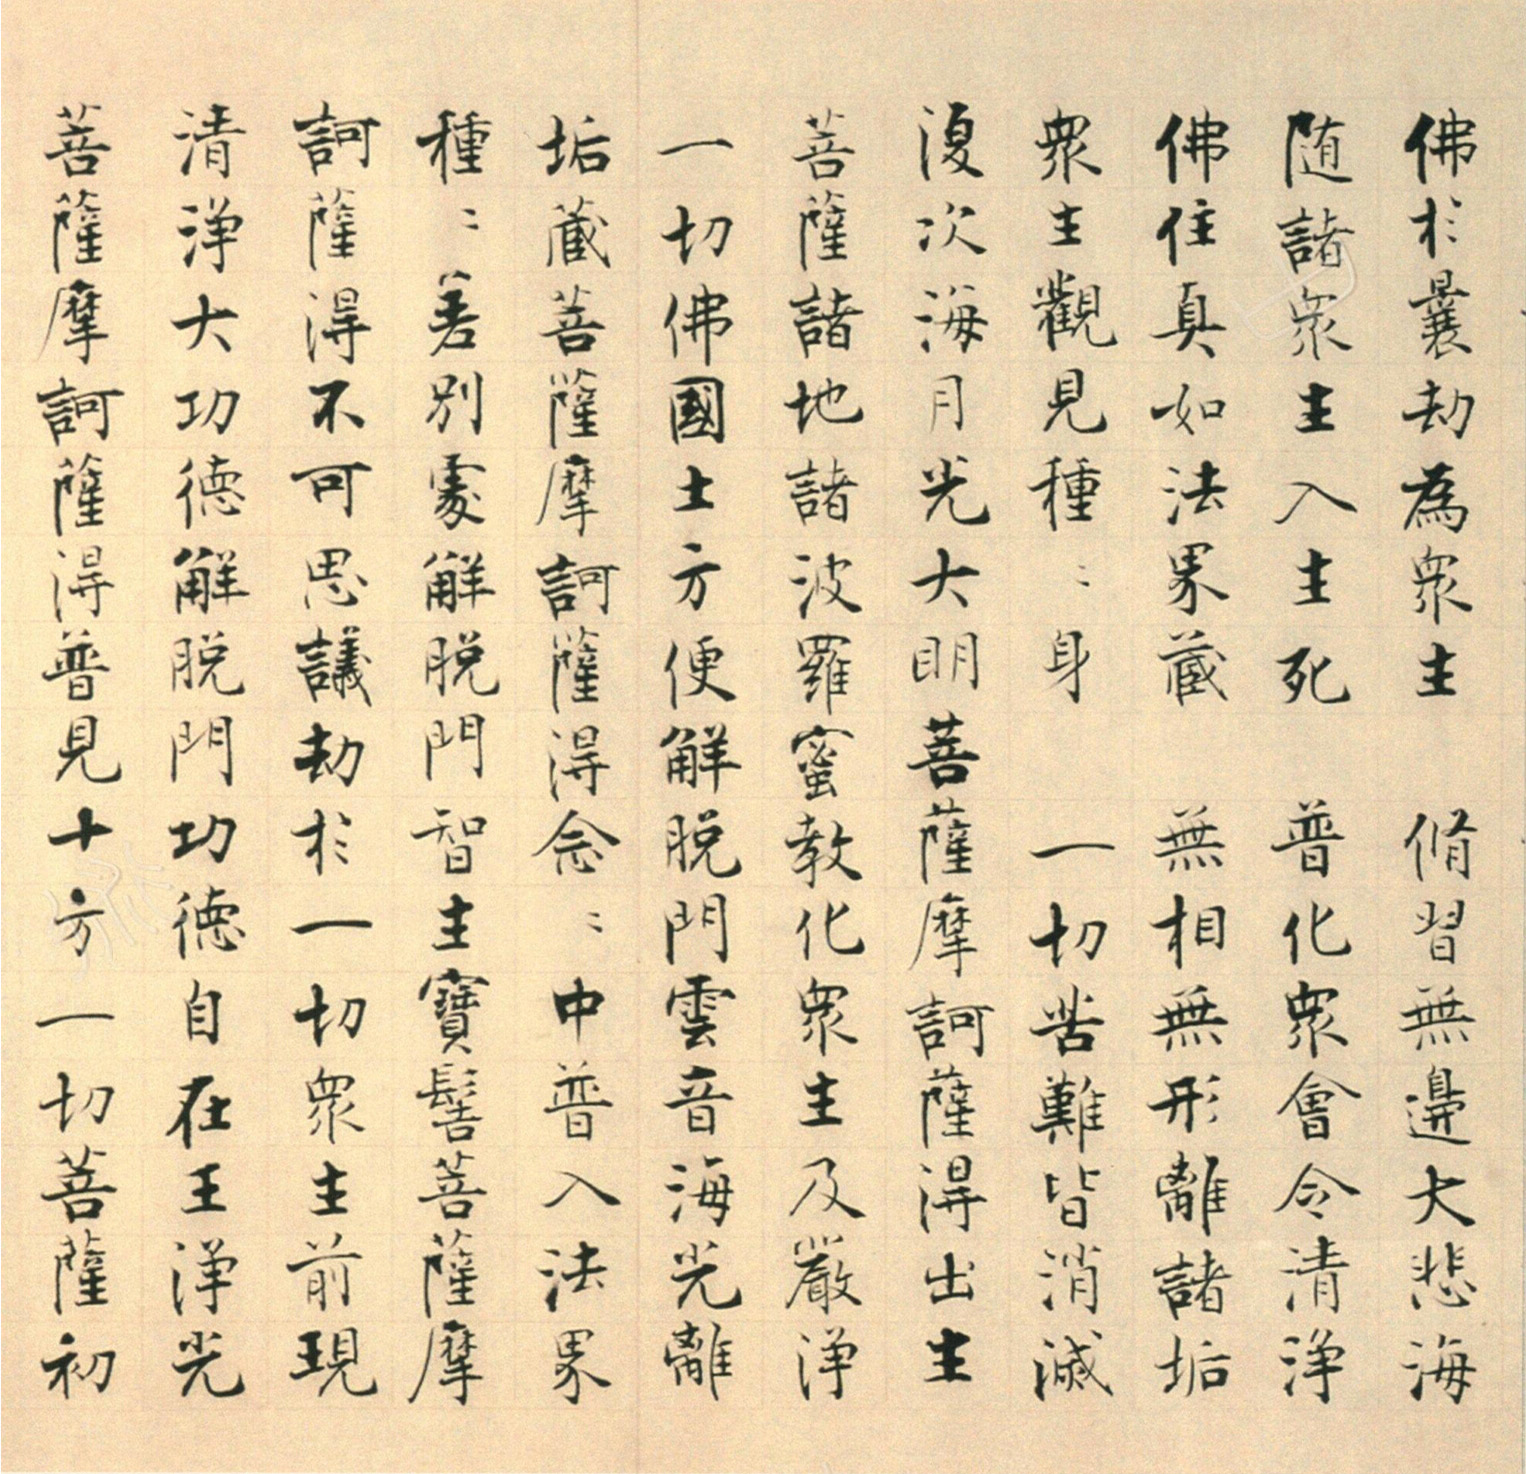 佛於曩劫為衆生　脩習無邊大悲海
随諸衆生入生死　普化衆會令清淨
佛住真如法界藏　無相無形離諸垢
衆生觀見種〻身　一切苦難皆消滅
復次海月光大明菩薩摩訶薩得出生
菩薩諸地諸波羅蜜教化衆生及嚴淨
一切佛國土方便解脱門雲音海光離
垢藏菩薩摩訶薩得念〻中普入法界
種〻差別處解脱門智生寶髻菩薩摩
訶薩得不可思議劫於一切衆生前現
清淨大功德解脱門功德自在王淨光
菩薩摩訶薩得普見十方一切菩薩初